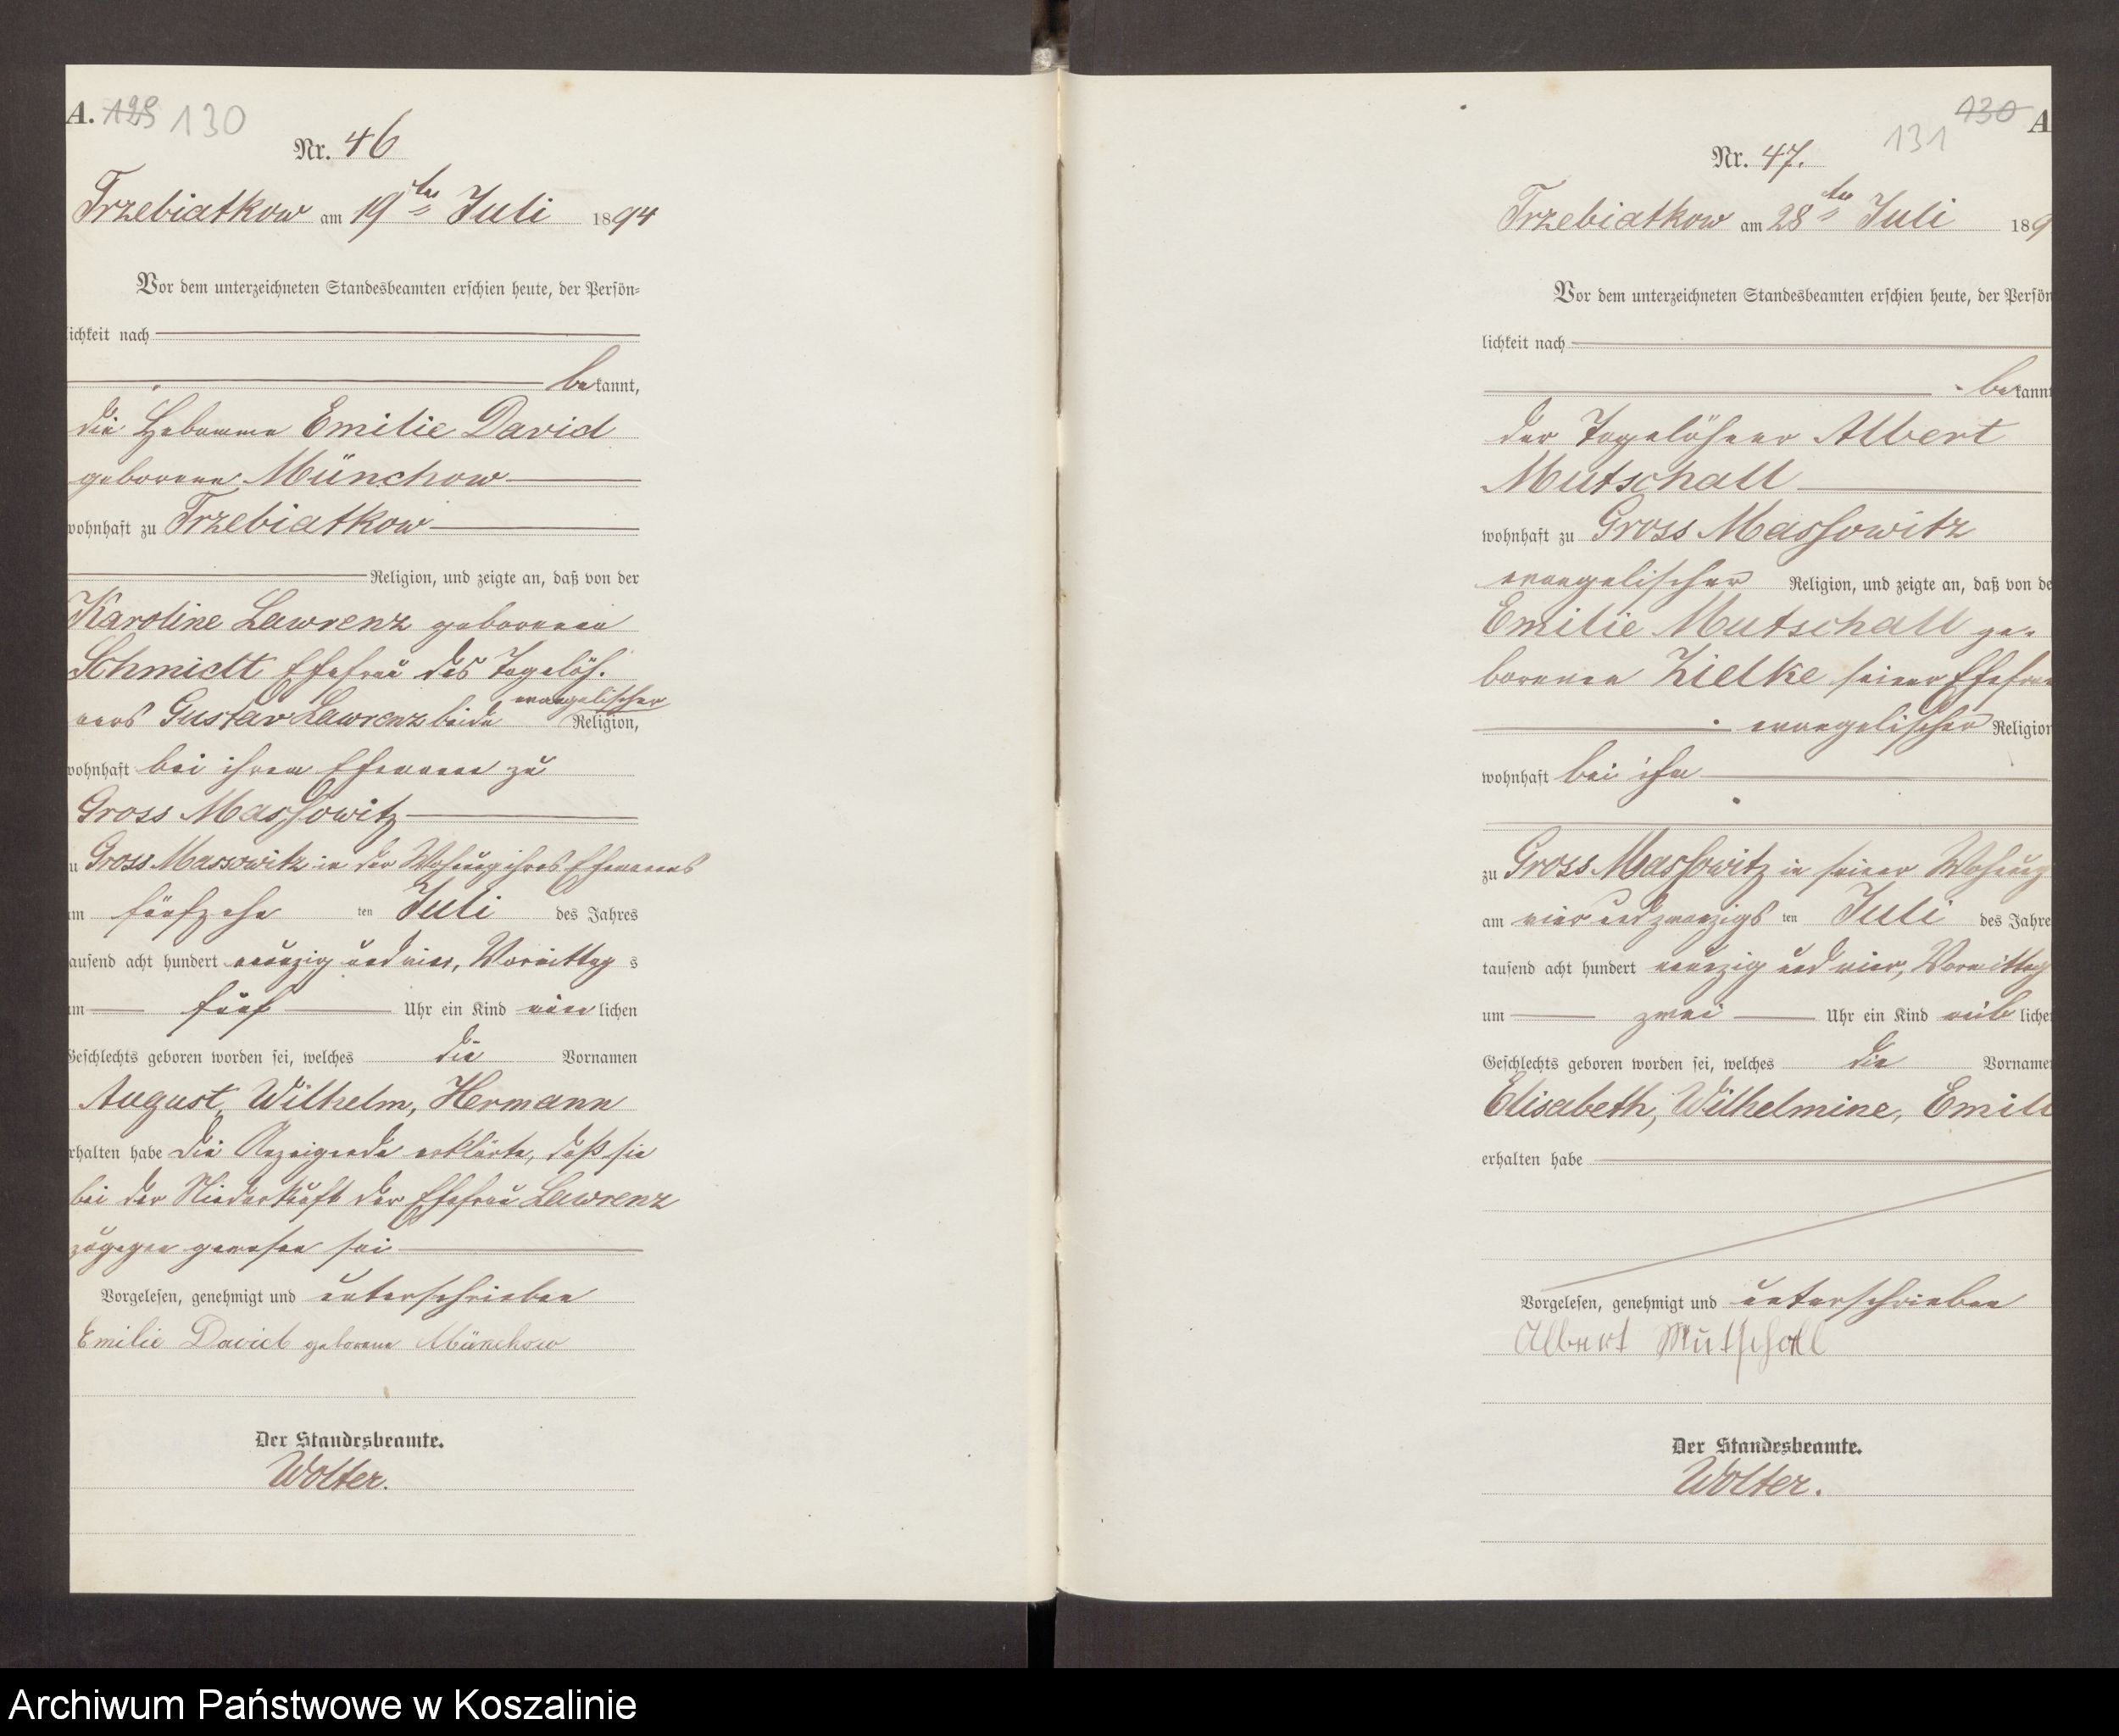 A. 129 130
Nr. 46
Trzebiatkow am 19ten Juli 1894
Vor dem unterzeichneten Standesbeamten erschien heute, der Persön=
lichkeit nach
bekannt,
die Hebamme Emilie David
geborene Münchow
wohnhaft zu Trzebiatkow
Religion, und zeigte an, daß von der
Karoline Lawrenz geborenen
Schmidt Ehefrau des Tagelöh-
ners Gustav Lawrenz beide evangelischer Religion,
wohnhaft bei ihrem Ehemann zu
Gross Massowitz
zu Gross Massowitz in der Wohnung ihres Ehemanns
am fünfzehn ten Juli des Jahres
tausend acht hundert neunzig und vier, Vormittag s
um fünf Uhr ein Kind männ lichen
Geschlechts geboren worden sei, welches die Vornamen
August, Wilhelm, Hermann
erhalten habe die Anzeigende erklärte, daß sie
bei der Niederkunft der Ehefrau Lawrenz
zugegen gewesen sei
Vorgelesen, genehmigt und unterschrieben
Emilie David geborene Münchow
Der Standesbeamte.
Wolter.
130 A
131
Nr. 47.
Trzebiatkow am 28ten Juli 189
Vor dem unterzeichneten Standesbeamten erschien heute, der Persön
lichkeit nach
bekannt
der Tagelöhner Albert
Mutschall
wohnhaft zu Gross Massowitz
evangelischer Religion, und zeigte an, daß von de
Emilie Mutschall ge-
borenen Zielke seiner Ehefrau
evangelischer Religion
wohnhaft bei ihm
zu Gross Massowitz in seiner Wohnung
am vier und zwanzigs ten Juli des Jahre
tausend acht hundert neunzig und vier, Vormittag
um zwei Uhr ein Kind weib liche
Geschlechts geboren worden sei, welches die Vorname
Elisabeth, Wilhelmine, Emili
erhalten habe
Vorgelesen, genehmigt und unterschrieben
Albert Mutschall
Der Standesbeamte.
Wolter.
Archiwum Państwowe w Koszalinie